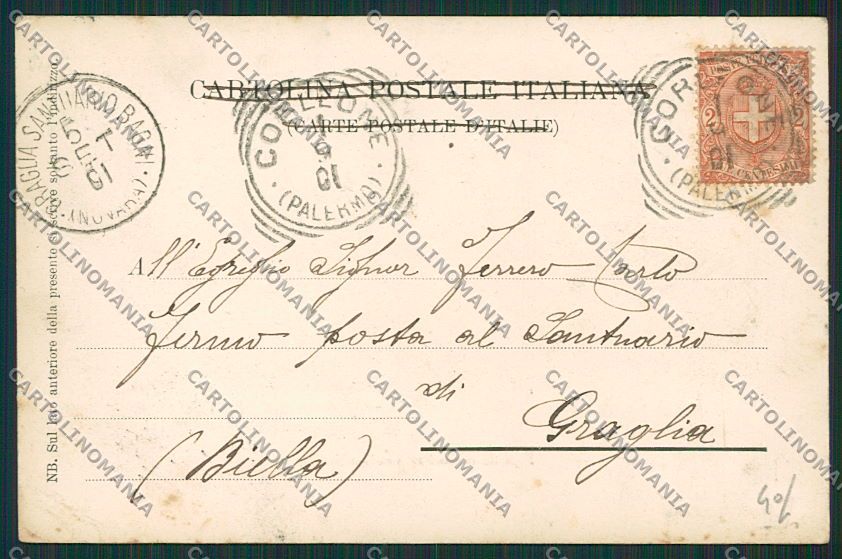 CARTOLINA POSTALE ITALIANA
(CARTE POSTALE D'ITALIE)
CORLEONE
(PALERMO)
CORLEONE
(PALERMO)
2 2
CENTESIMI
GRAGLIA SANTUARIO BAGNI
(NOVARA)
NB. Sul lato anteriore della presente si scrive soltanto l'indirizzo
All'Egregio Signor Ferrero Carlo
fermo posta al Santuario
di
Graglia
(Biella)
CARTOLINOMANIA